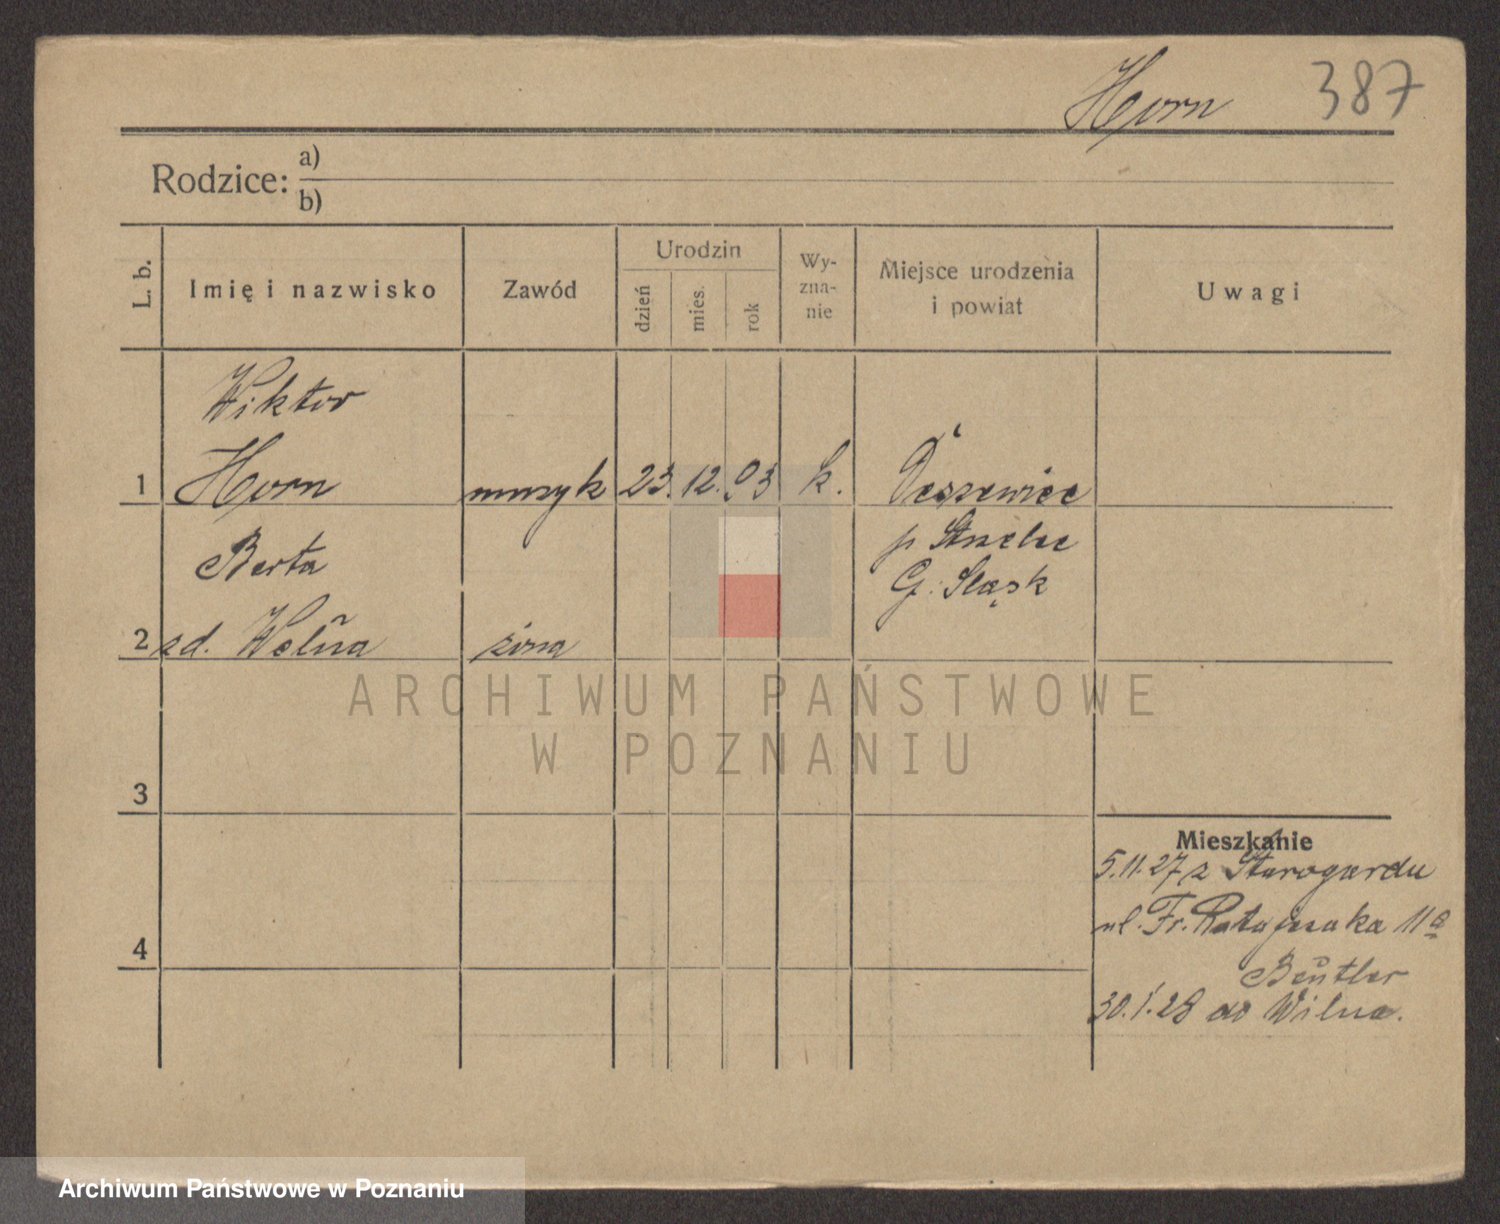 Horn 387
Rodzice: a)
b)
L. b. Imię i nazwisko Zawód Urodzin dzień mies. rok Wy-zna-nie Miejsce urodzenia i powiat Uwagi
Wiktor
1 Horn muzyk 23. 12. 93 k.
p. Strzelce
G. Śląsk
Berta
2 zd. Welna żona
ARCHIWUM PAŃSTWOWE
W POZNANIU
3
4
Mieszkanie
5.11.27 z Starogardu
ul. Fr. Ratajczaka 11a
Beutler
30.1.28 do Wilna.
Archiwum Państwowe w Poznaniu